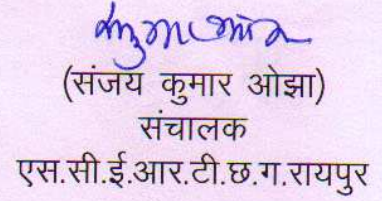 (संजय कुमार ओझा)
संचालक
एस.सी.ई.आर.टी.छ.ग.रायपुर